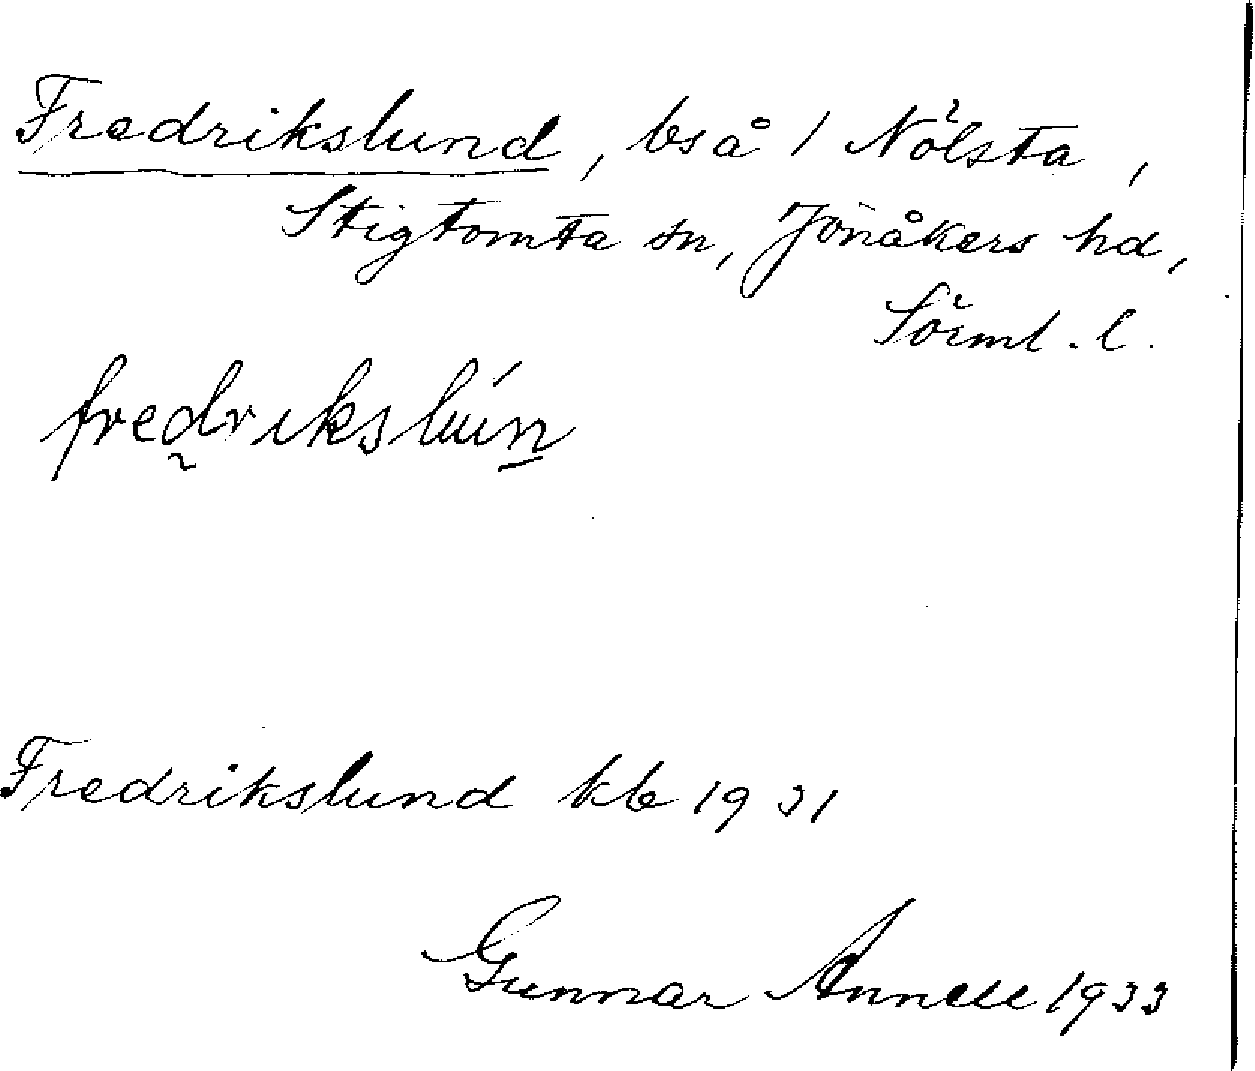 Fredrikslund, bs å / Nölsta,
Stigtomta sn, Jönåkers hd,
Sörml. l.
fredrikslún
Fredrikslund kb 1931
Gunnar Annell 1933